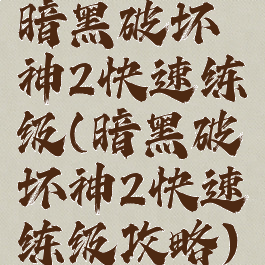 暗黑破坏
神2快速练
级(暗黑破
坏神2快速
练级攻略)